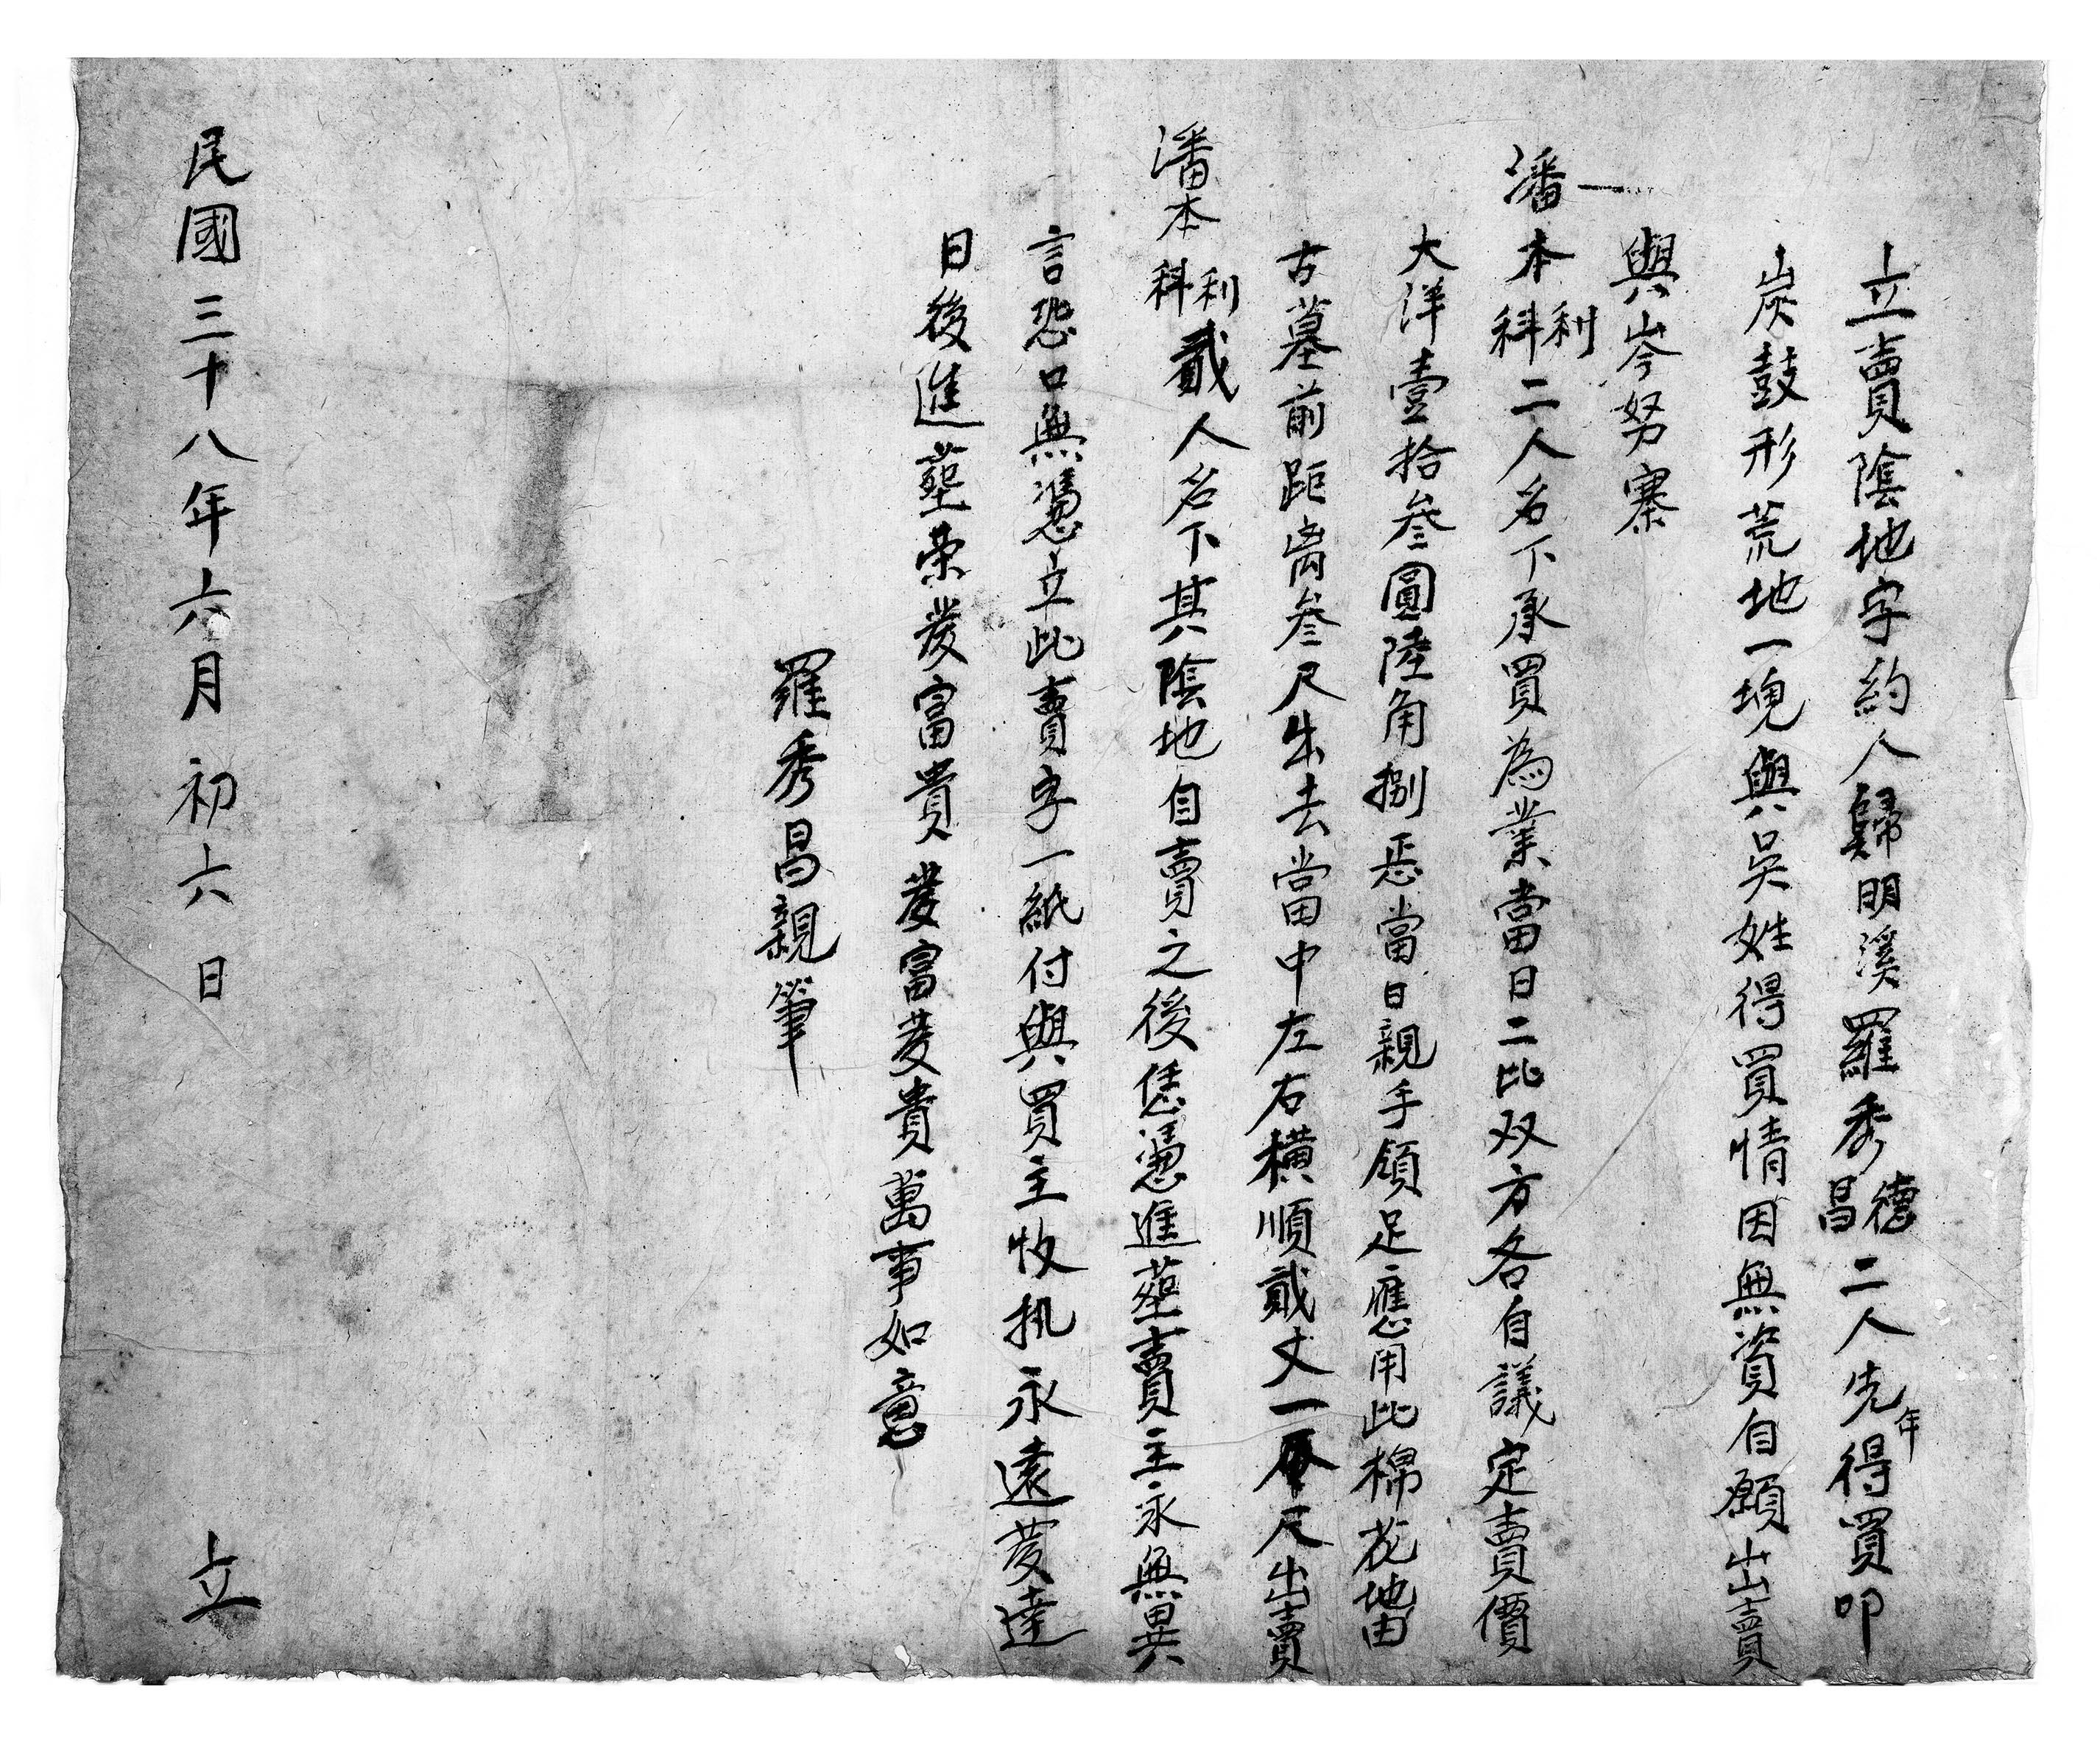 立賣陰地字約人歸明溪羅秀德昌二人先年得買叩
炭鼓形荒地一塊與吳姓得買情因無資自願出賣
與岑努寨
潘本利科二人名下承買為業當日二比双方各自議定賣價
大洋壹拾叁圓陸角捌 當日親手領足應用此棉花地由
古墓前距离叁尺出去當中左右橫順貳丈一 尺出賣
潘本利科貳人名下其陰地自賣之後恁憑進塟賣主永無異
言恐口無憑立此賣字一紙付與買主收执永遠發達
日後進塟榮發富貴發富發貴萬事如意
羅秀昌親筆
民國三十八年六月初六日 立